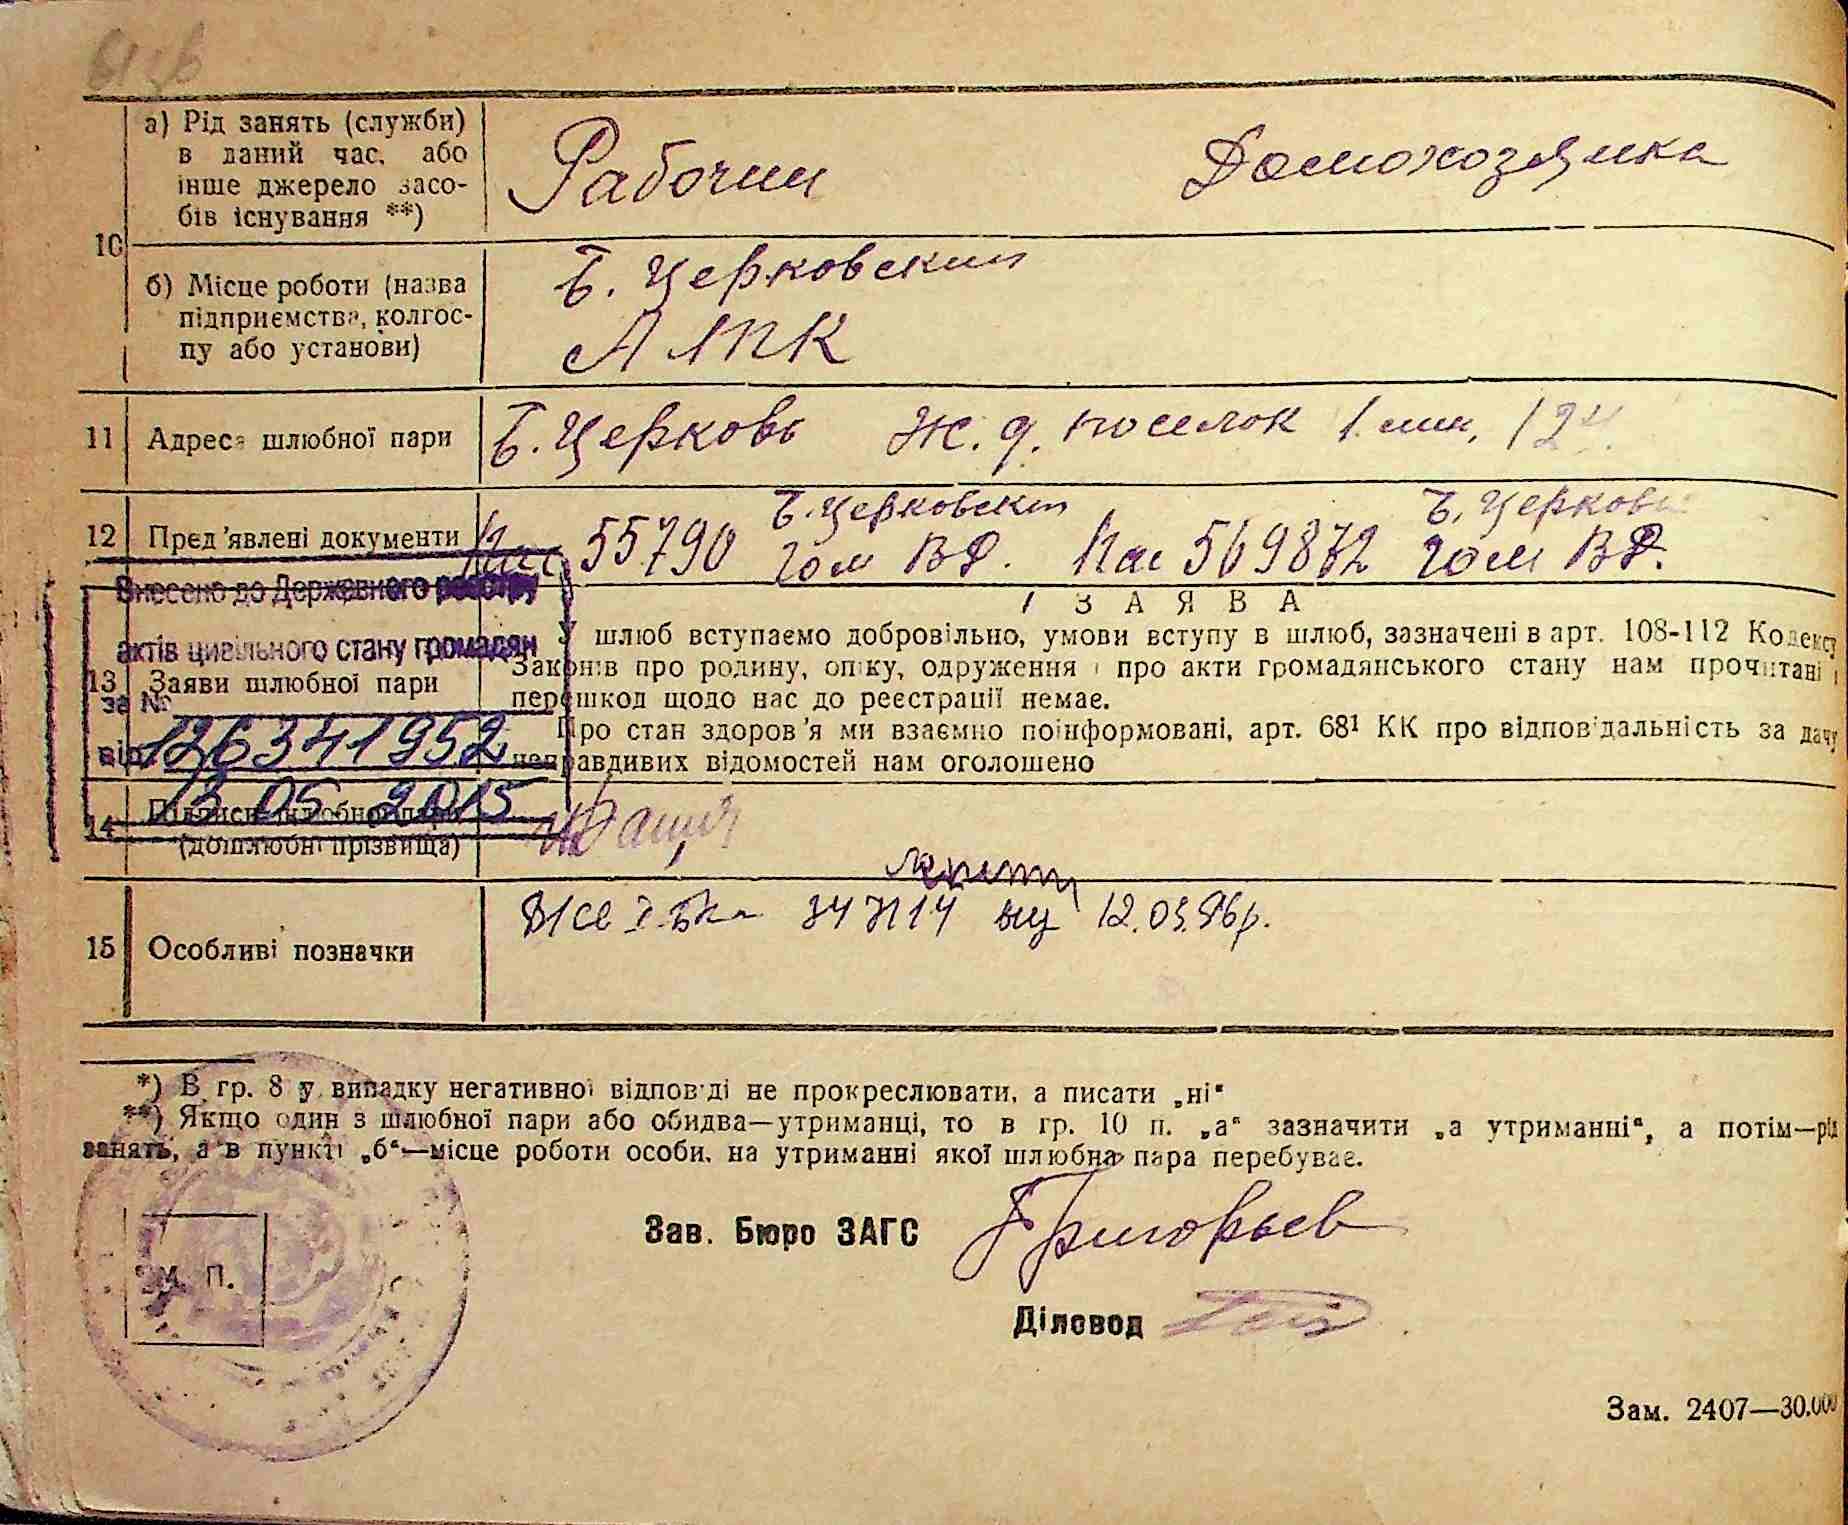 10
а) Рід занять (служби)
в даний час, або
інше джерело засо-
бів існування **)
Рабочий Домохозяйка
б) Місце роботи (назва
підприємства, колгос-
пу або установи)
Б. Церковский
АТПК
11 Адреса шлюбної пари
Б. Церковь Ж. д. поселок 1 лин, 124
12 Пред'явлені документи
Пас 55790 Б. Церковский Гом ВД. Пас 569872 Б. Церковс Гом ВД.
Внесено до Державного реєстру
актів цивільного стану громадян
за №
126341952
від
13 05 2015
13 Заяви шлюбної пари
ЗАЯВА
У шлюб вступаємо добровільно, умови вступу в шлюб, зазначені в арт. 108-112 Кодексу
Законів про родину, опіку, одруження і про акти громадянського стану нам прочитані і
перешкод щодо нас до реєстрації немає.
Про стан здоров'я ми взаємно поінформовані, арт. 68¹ КК про відповідальність за дачу
неправдивих відомостей нам оголошено
14 Підписи шлюбної пари
(дошлюбні прізвища)
15 Особливі позначки
12.03.96р.
*) В гр. 8 у випадку негативної відповіді не прокреслювати, а писати „ні“
**) Якщо один з шлюбної пари або обидва—утриманці, то в гр. 10 п. „а“ зазначити „а утриманні“, а потім—рід
занять, а в пункті „б“—місце роботи особи, на утриманні якої шлюбна пара перебуває.
Зав. Бюро ЗАГС Григорьев
М. П.
Діловод
Зам. 2407—30.000